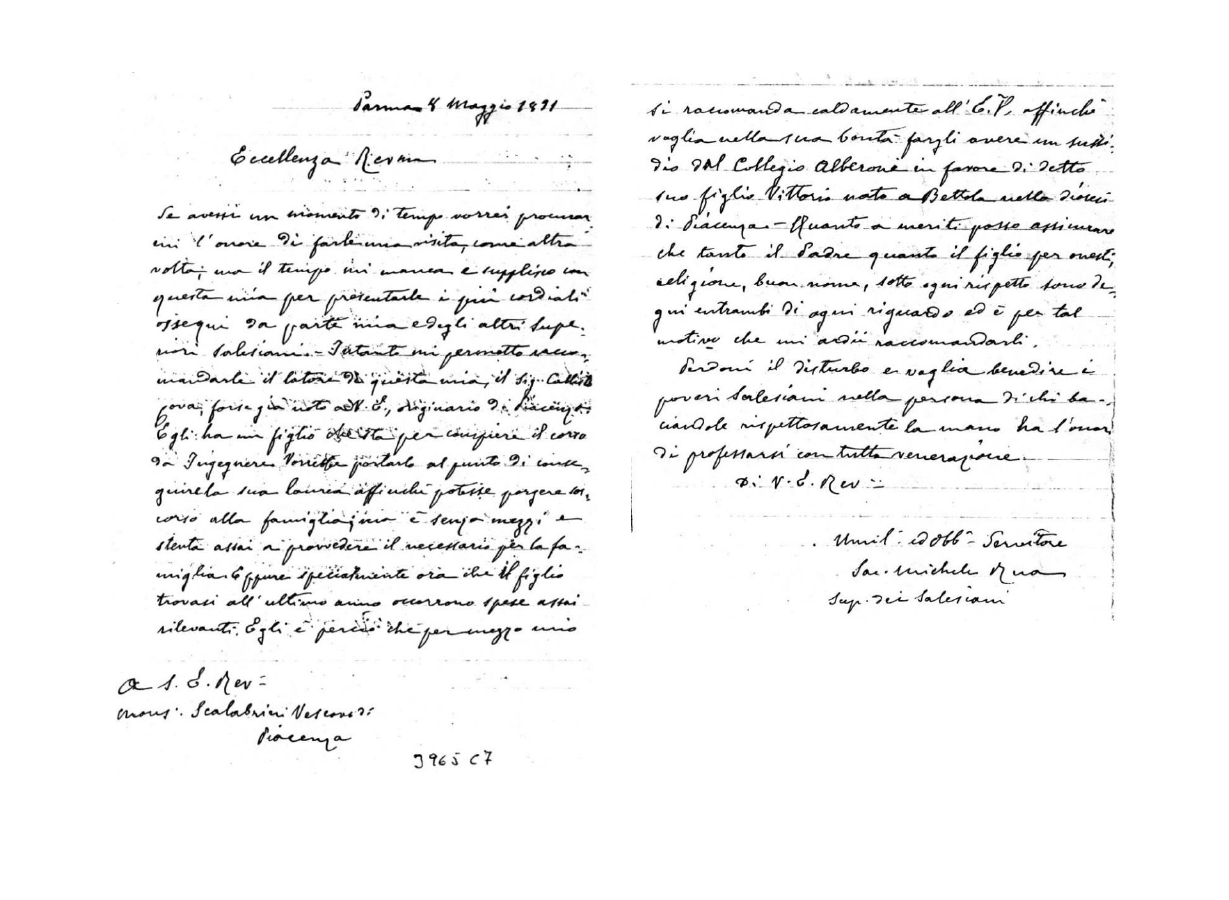 Parma 8 Maggio 1891
Eccellenza Rev.ma
Se avessi un momento di tempo vorrei procurar
mi l'onore di farle una visita, come altra
volta; ma il tempo mi manca e supplisco con
questa mia per presentarle i più cordiali
ossequi da parte mia e degli altri Supe-
riori Salesiani. - Intanto mi permetto racco-
mandarle il latore di questa mia, il Sig.
forse già noto a V. E., originario di Piacenza.
Egli ha un figlio che sta per compiere il corso
da Ingegnere. Vorrebbe portarlo al punto di conse-
guire la sua laurea affinchè potesse porgere soc-
corso alla famiglia; ma è senza mezzi e
stenta assai a provvedere il necessario per la fa-
miglia. Eppure specialmente ora che il figlio
trovasi all'ultimo anno occorrono spese assai
rilevanti. Egli è perciò che per mezzo mio
A S. E. Rev=
Mons. Scalabrini Vescovo di
Piacenza
3965 C7
si raccomanda caldamente all'E.V. affinchè
voglia nella sua bontà fargli avere un sussi-
dio dal Collegio Alberoni in favore di detto
suo figlio Vittorio nato a Bettola nella diocesi
di Piacenza. - Quanto a meriti posso assicurare
che tanto il Padre quanto il figlio per onestà,
religione, buon nome, sotto ogni rispetto sono de-
gni entrambi di ogni riguardo ed è per tal
motivo che mi ardii raccomandarli.
Perdoni il disturbo e voglia benedire i
poveri Salesiani nella persona di chi ba-
ciandole rispettosamente la mano ha l'onor
di professarsi con tutta venerazione
Di V. E. Rev=
Umil. ed Obb. Servitore
Sac. Michele Rua
Sup. dei Salesiani